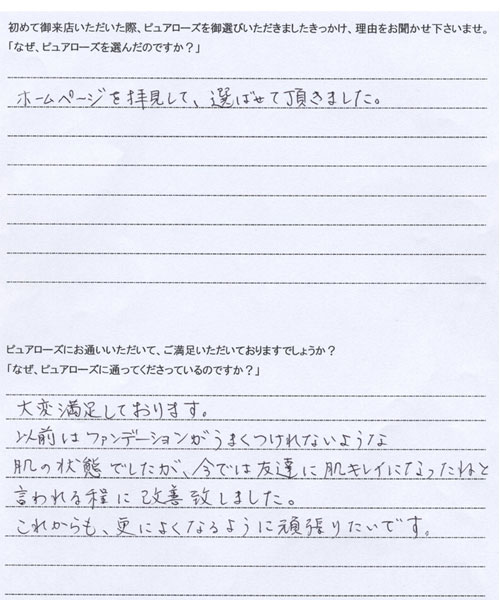 初めて御来店いただいた際、ピュアローズを御選びいただきましたきっかけ、理由をお聞かせ下さいませ。
「なぜ、ピュアローズを選んだのですか？」
ホームページを拝見して、選ばせて頂きました。
ピュアローズにお通いいただいて、ご満足いただいておりますでしょうか？
「なぜ、ピュアローズに通ってくださっているのですか？」
大変満足しております。
以前はファンデーションがうまくつけれないような
肌の状態でしたが、今では友達に肌キレイになったねと
言われる程に改善致しました。
これからも、更によくなるように頑張りたいです。